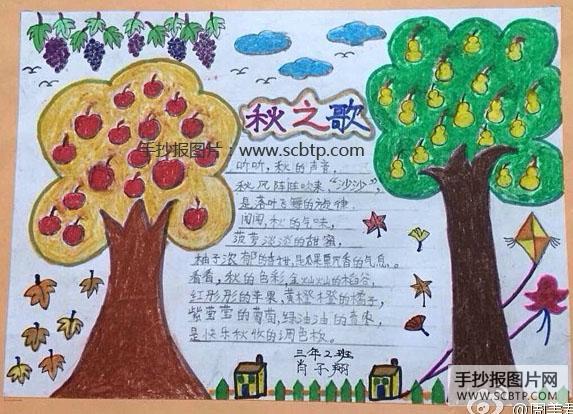 秋之歌
手抄报图片:www.scbtp.com
听听,秋的声音,
秋风阵阵吹来“沙沙”,
是落叶飞舞的旋律。
闻闻,秋的气味,
菠萝淡淡的甜蜜,
柚子浓郁的香甜,是瓜果飘香的气息。
看看,秋的色彩,金灿灿的稻谷,
红彤彤的苹果,黄橙橙的橘子,
紫莹莹的葡萄,绿油油的青枣,
是快乐秋收的调色板。
三年2班
肖子翔
手抄报图片网
WWW.SCBTP.COM